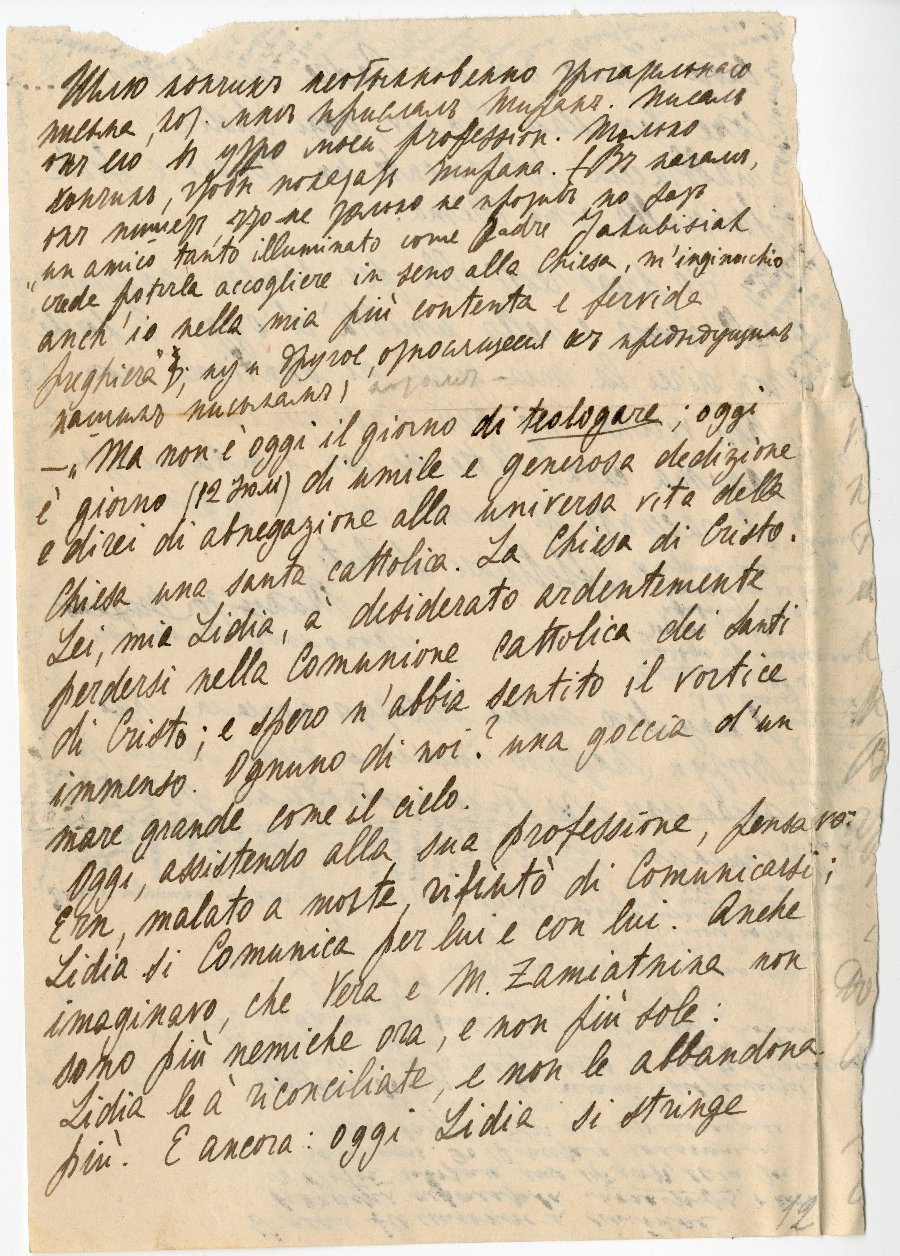 Шлю кончикъ необыкновенно трогательнаго
письма, кот. мнѣ прислалъ Тиганъ. Писалъ
онъ его въ утро моей profession. Только
кончикъ, чтобы
онъ пишетъ, что не только не противъ, но разъ
„un amico tanto illuminato come Padre Jakubisiak
crede poterla accogliere in seno alla Chiesa, m'inginocchio
anch'io nella mia più contenta e fervida
preghiera"; ну и другое, относящееся къ предыдущимъ
нашимъ письмамъ;
— „Ma non è oggi il giorno di teologare; oggi
è giorno (12 Іюля) di umile e generosa dedizione
e direi di abnegazione alla universa vita della
Chiesa una santa cattolica. La Chiesa di Cristo.
Lei, mia Lidia, à desiderato ardentemente
perdersi nella Comunione cattolica dei Santi
di Cristo; e spero n'abbia sentito il vortice
immenso. Ognuno di noi? una goccia d'un
mare grande come il cielo.
Oggi, assistendo alla sua professione, pensavo:
Ern, malato a morte, rifiutò di Comunicarsi;
Lidia si Comunica per lui e con lui. Anche
imaginavo, che Vera e M. Zamiatnina non
sono più nemiche ora, e non più sole:
Lidia le à riconciliate, e non le abbandona
più. E ancora: oggi Lidia si stringe
12